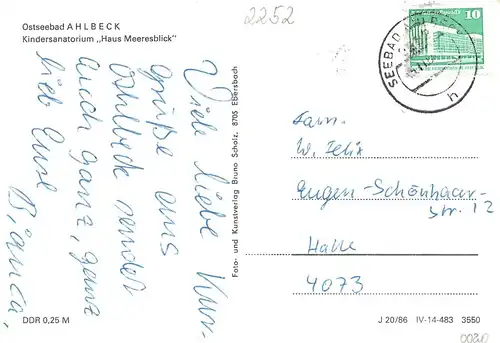 2252
Ostseebad AHLBECK
Kindersanatorium „Haus Meeresblick"
Viele liebe Kur-
grüße aus
Ahlbeck sendet
auch ganz, ganz
lieb Eure
Bianca.
DDR 0,25 M
Foto- und Kunstverlag Bruno Scholz, 8705 Ebersbach
10
SEEBAD AHLBECK
h
Fam.
W. Felix
Eugen-Schönhaar-
Str. 12
Halle
4073
J 20/86 IV-14-483 3550
0020